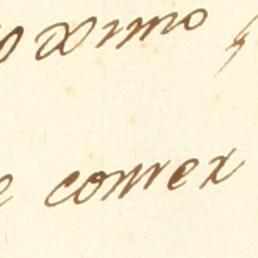 oximo
e convex